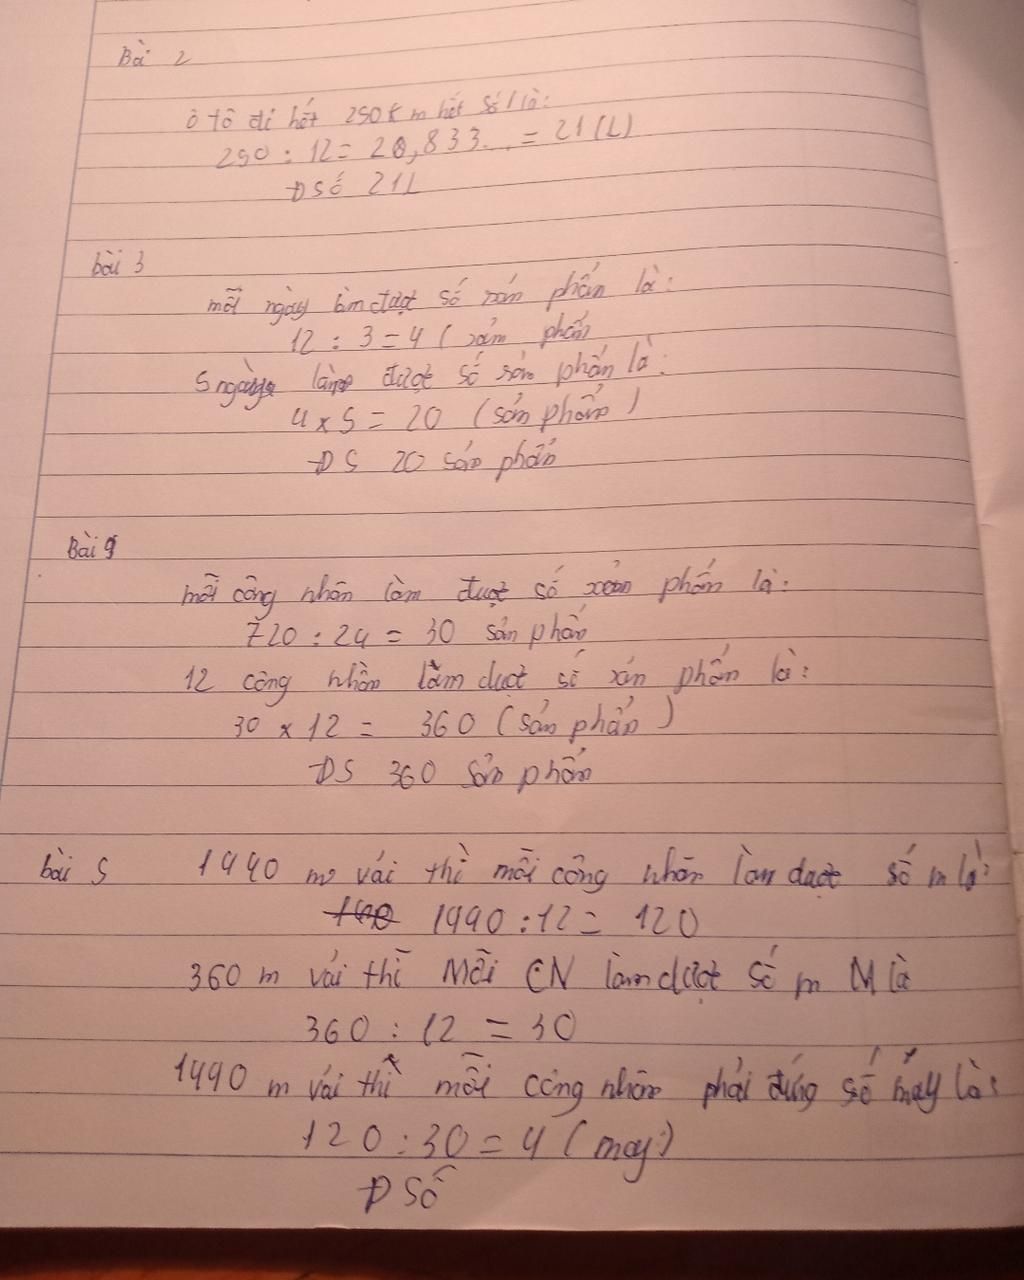 Bài 2
ô tô đi hết 250km hết số l là:
250 : 12 = 20,833... = 21 (L)
Đ số 21L
bài 3
mỗi ngày làm được số xản phẩn là:
12 : 3 = 4 ( xảm phẩn
5 ngày làm được số sản phẩn là:
4 x 5 = 20 (sản phẩn)
ĐS 20 sản phẩn
Bài 4
mỗi công nhân làm được số xản phẩn là:
720 : 24 = 30 sản phẩn
12 công nhân làm được số xản phẩn là:
30 x 12 = 360 (sản phẩn)
ĐS 360 sản phẩn
bài 5 1440 m vải thì mỗi công nhân làm được số m là:
1440 : 12 = 120
360 m vải thì Mỗi CN làm được số m M là
360 : 12 = 30
1440 m vải thì mỗi công nhân phải đứng số máy là:
120 : 30 = 4 (máy)
Đ Số